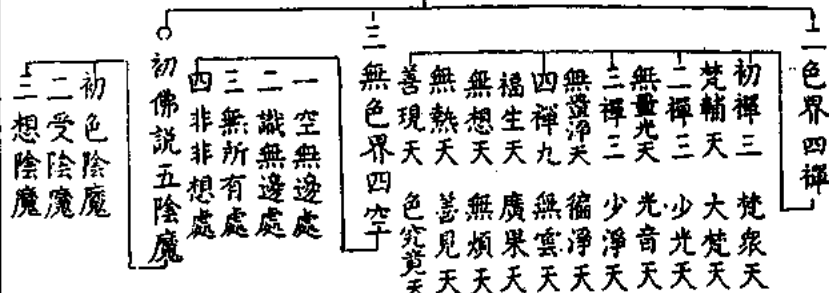 二色界四禪
初禪三 梵衆天
梵輔天 大梵天
二禪三 少光天
無量光天 光音天
三禪三 少淨天
無量淨天 徧淨天
四禪九 無雲天
福生天 廣果天
無想天 無煩天
無熱天 善見天
善現天 色究竟天
三無色界四空
一空無邊處
二識無邊處
三無所有處
四非非想處
初佛説五陰魔
初色陰魔
二受陰魔
三想陰魔